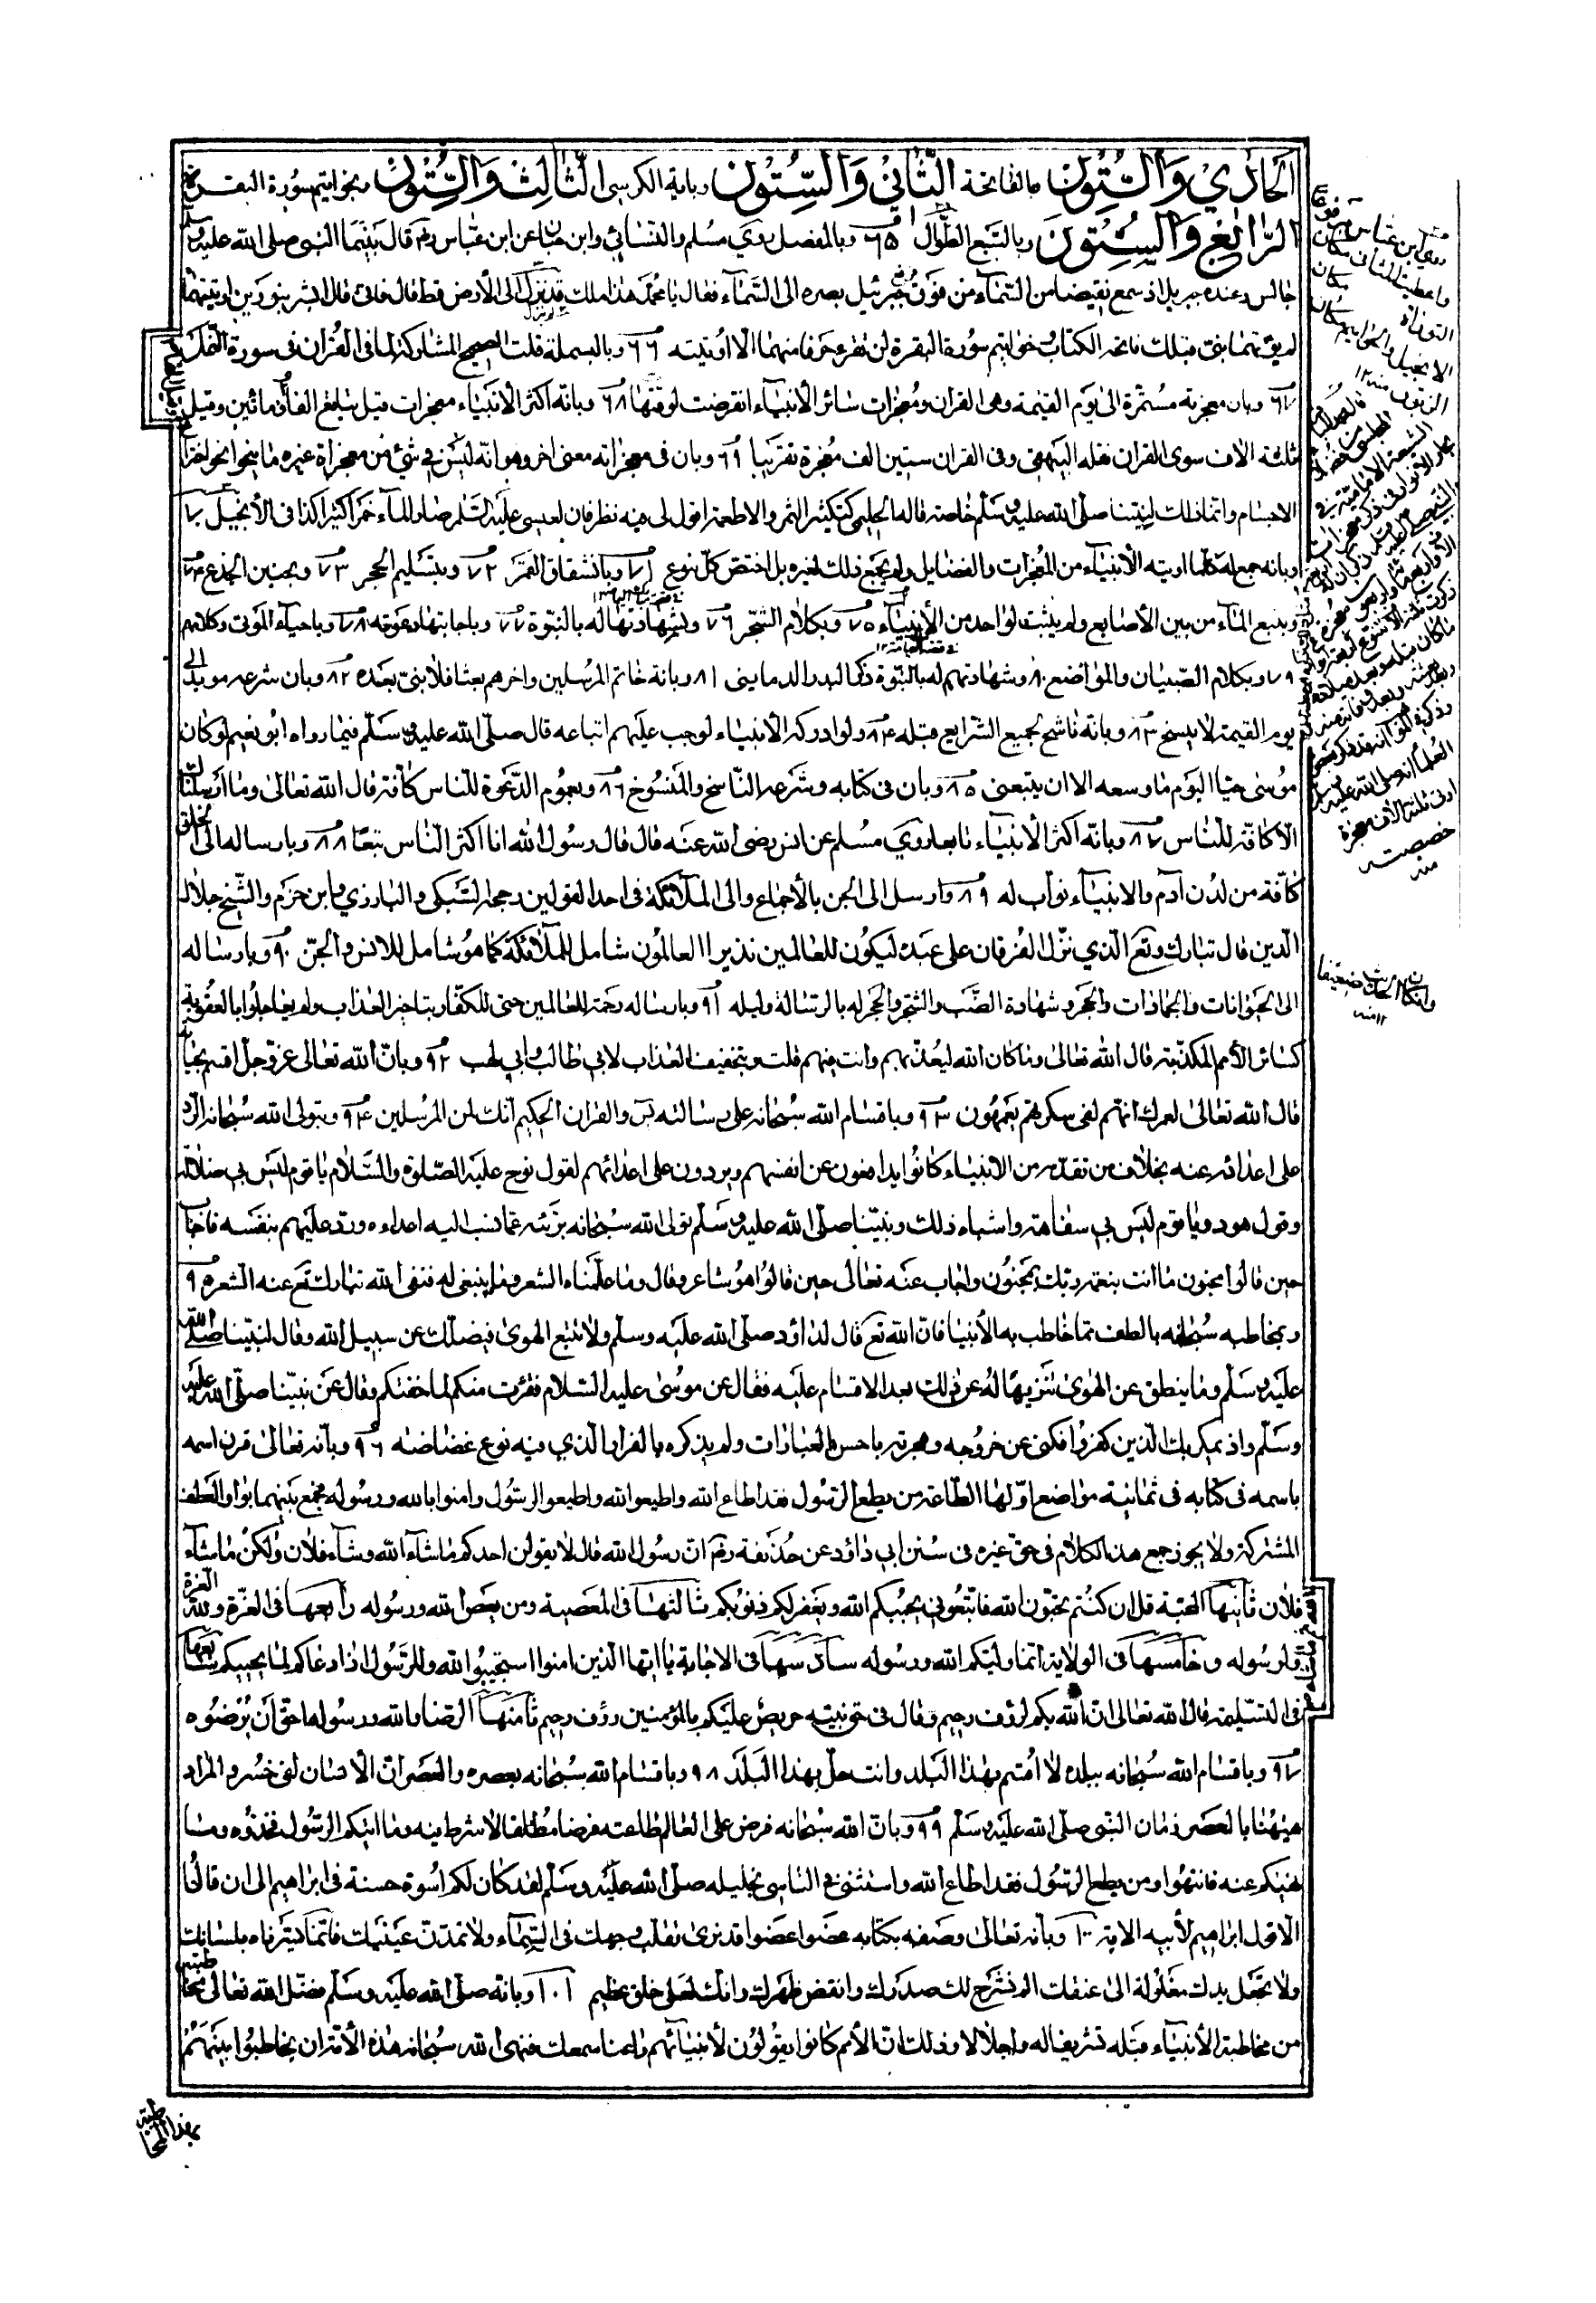 الحادي والستون بالفاتحة الثاني والستون وباية الكرسي الثالث والستون وبخواتيم سورة البقرة
الرابع والستون وبالسبع الطوال ٦٥ وبالمفصل روي مسلم والنسائي وابن حبان عن ابن عباس رضم قال بينما النبي صلى الله عليه وسلم
جالس وعنده جبريل اذ سمع نقيضا من السماء من فوق جبرئيل بصره الى السماء فقال يا محمد هذا ملك قد نزل الى الأرض قط قال فاتى قال ابشر بنورين اوتيتهما
لم يؤتهما نبي قبلك فاتحة الكتاب وخواتيم سورة البقرة لن تقرء حرفا منهما الا اوتيته ٦٦ وبالبسملة قلت الصحيح المشاركة لما في القران في سورة النمل
٦٧ وبان معجزته مستمرة الى يوم القيمة وهي القران ومعجزات سائر الأنبياء انقرضت لوقتها ٦٨ وبانه اكثر الأنبياء معجزات قيل تبلغ الفا ومائتين وقيل
ثلثة الاف سوى القران نقله البيهقي وفي القران ستين الف معجزة تقريبا ٦٩ وبان في معجزاته معنى اخر وهو انه ليس في شئ من معجزاة غيره ما ينحو نحو اختراع
الاجسام وانما ذلك لنبينا صلى الله عليه وسلم خاصة قاله الحليمي كتكثير التمر والاطعمة اقول لي فيه نظر فان لعيسى عليه السلم صار الماء خمرا كثيرا كذا في الأنجيل ٧٠
وبانه جمع له كلما اوتيه الأنبياء من المعجزات والفضايل ولم يجمع ذلك لغيره بل اختص كل بنوع ٧١ وبانشقاق القمر ٧٢ وبتسليم الحجر ٧٣ وبحنين الجذع ٧٤
وبنبع الماء من بين الأصابع ولم يثبت لواحد من الأنبياء ٧٥ وبكلام الشجر ٧٦ ولشهادتها له بالنبوة ٧٧ وباجابتها دعوته ٧٨ وباحياء الموتى وكلامهم
٧٩ وبكلام الصبيان والمراضع ٨٠ وشهادتهم له بالنبوة ذكره البدر الدماميني ٨١ وبانه خاتم المرسلين واخرهم بعثا فلا نبي بعده ٨٢ وبان شرعه مؤبد الى
يوم القيمة لا ينسخ ٨٣ وبانه ناسخ لجميع الشرايع قبله ٨٤ ولو ادركه الأنبياء لوجب عليهم اتباعه قال صلى الله عليه وسلم فيما رواه ابو نعيم لو كان
موسى حيا اليوم ما وسعه الا ان يتبعني ٨٥ وبان في كتابه وشرعه الناسخ والمنسوخ ٨٦ وبعموم الدعوة للناس كافة قال الله تعالى وما ارسلناك
الا كافة للناس ٨٧ وبانه اكثر الأنبياء تابعا روي مسلم عن انس رضي الله عنه قال قال رسول الله انا اكثر الناس تبعا ٨٨ وبارساله الى الخلق
كافة من لدن آدم والانبياء نواب له ٨٩ وارسل الى الجن بالأجماع والى الملائكة في احد القولين رجحه السبكي والبارزي وابن حزم والشيخ جلال
الدين قال تبارك وتع الذي نزل الفرقان على عبده ليكون للعالمين نذيرا العالمون شامل للملائكة كما هو شامل للانس والجن ٩٠ وبارساله
الى الحيوانات والجمادات والحجر وشهادة الضب والشجر والحجر له بالرسالة وليله ٩١ وبارساله رحمة للعالمين حتى للكفار بتاخير العذاب ولم يعاجلوا بالعقوبة
كسائر الأمم المكذبة قال الله تعالى وما كان الله ليعذبهم وانت فيهم قلت وبتخفيف العذاب لابي طالب وابي لهب ٩٢ وبان الله تعالى عز وجل اقسم بحياته
قال الله تعالى لعمرك انهم لفي سكرتهم يعمهون ٩٣ وباقسام الله سبحانه على رسالته يس والقران الحكيم انك لمن المرسلين ٩٤ وبتولي الله سبحانه الرد
على اعدائه عنه بخلاف من تقدمه من الانبياء كانوا يدافعون عن انفسهم ويردون على اعدائهم لقول نوح عليه الصلوة والسلام يا قوم ليس بي ضلالة
وقول هود ويا قوم ليس بي سفاهة واشباه ذلك ونبينا صلى الله عليه وسلم تولى الله سبحانه تبرئته عما نسب اليه اعداءه ورد عليهم بنفسه فاجاب
حين قالوا مجنون ما انت بنعمة ربك بمجنون واجاب عنه تعالى حين قالوا هو شاعر وقال وما علمناه الشعر وما ينبغي له فنفى الله تبارك تع عنه الشعر ٩٥
وبمخاطبه سبحانه بالطف مما خاطب به الأنبيا فان الله تع قال لداؤد صلى الله عليه وسلم ولا تتبع الهوى فيضلك عن سبيل الله وقال لنبينا صلى الله
عليه وسلم وما ينطق عن الهوى تنزيها له عن ذلك بعد الاقسام عليه فقال عن موسى عليه السلام ففررت منكم لما خفتكم وقال عن نبينا صلى الله عليه
وسلم واذ يمكر بك الذين كفروا فكنى عن خروجه وهجرته باحسن العبارات ولم يذكره بالفرار الذي فيه نوع غضاضه ٩٦ وبانه تعالى قرن اسمه
باسمه في كتابه في ثمانية مواضع اولها الطاعة من يطع الرسول فقد اطاع الله واطيعوا الله واطيعوا الرسول وامنوا بالله ورسوله فجمع بينهما بواو العطف
المشتركة ولا يجوز جمع هذا الكلام في حق غيره في سنن ابي داؤد عن حذيفة رضم ان رسول الله قال لا يقولن احدكم ما شاء الله وشاء فلان ولكن ما شاء
فلان ثانيها المحبة قل ان كنتم تحبون الله فاتبعوني يحببكم الله ويغفر لكم ذنوبكم ثالثها في المعصية ومن يعص الله ورسوله رابعها في العزة ولله العزة
ولرسوله وخامسها في الولاية انما وليكم الله ورسوله سادسها في الاجابة يا ايها الذين امنوا استجيبوا لله وللرسول اذا دعاكم لما يحييكم سابعها
في التسلية قال الله تعالى ان الله بكم لرؤف رحيم وقال في حق نبيه حريص عليكم بالمؤمنين رؤف رحيم ثامنها الرضا والله ورسوله احق ان يرضوه
٩٧ وباقسام الله سبحانه ببلده لا اقسم بهذا البلد وانت حل بهذا البلد ٩٨ وباقسام الله سبحانه بعصره والعصر ان الأنسان لفي خسر والمراد
هيهنا بالعصر زمان النبي صلى الله عليه وسلم ٩٩ وبان الله سبحانه فرض على العالم طاعته فرضا مطلقا لا شرط فيه وما اتيكم الرسول فخذوه وما
نهيكم عنه فانتهوا ومن يطع الرسول فقد اطاع الله واستثنى في التاسي بخليله صلى الله عليه وسلم لقد كان لكم اسوة حسنة في ابراهيم الى ان قال
الا قول ابراهيم لأبيه الاية ١٠٠ وبانه تعالى وصفه بكتابه عضوا عضوا قد نرى تقلب وجهك في السماء ولا تمدن عينيك فانما يسرناه بلسانك
ولا تجعل يدك مغلولة الى عنقك الم نشرح لك صدرك وانقض ظهرك وانك لعلى خلق عظيم ١٠١ وبانه صلى الله عليه وسلم فضل الله تعالى مخاطبته
من مخاطبة الأنبياء قبله تشريفا له واجلالا وذلك ان الأمم كانوا يقولون لأنبيائهم راعنا سمعك فنهى الله سبحانه هذه الأمة ان يخاطبوا بينهم
بهذا المخاطبة
روي ابن عباس مرفوعا
واعطيت المثاني مكان
التوراة
مكان
الانجيل والحواميم مكان
الزبور منه ١٢
العلماء انه صلى الله عليه وسلم
اوتي ثلثة الاف معجزة
خصيصة
منه
وان كان الحديث ضعيفا
١٢ منه